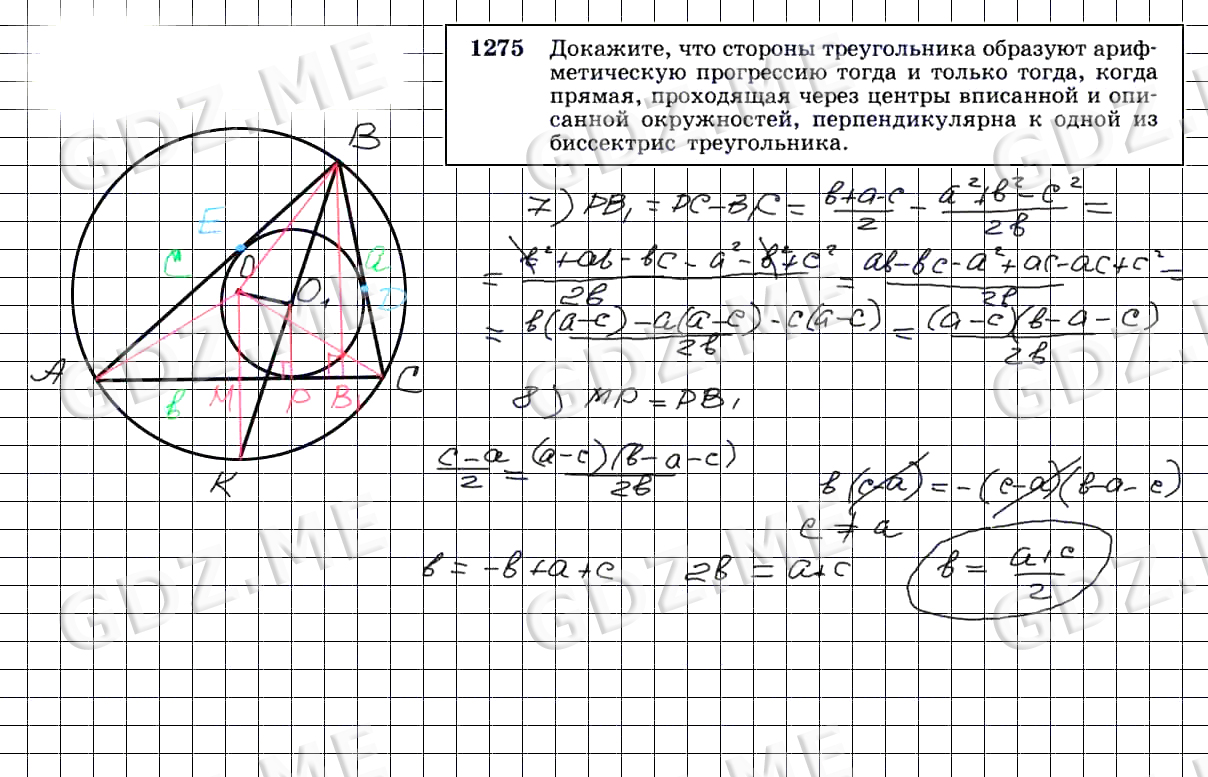 1275 Докажите, что стороны треугольника образуют ариф-
метическую прогрессию тогда и только тогда, когда
прямая, проходящая через центры вписанной и опи-
санной окружностей, перпендикулярна к одной из
биссектрис треугольника.
B
E
C
O
a
O₁
D
A
в
M
P
B₁
C
K
7) PB₁ = PC – B₁C = (в+a-c)/2 – (a²+в²-c²)/2в =
= (в²+aв-вc-a²-в²+c²)/2в = (aв-вc-a²+ac-ac+c²)/2в =
= (в(a-c)-a(a-c)-c(a-c))/2в = ((a-c)(в-a-c))/2в
8) MP = PB₁
(c-a)/2 = ((a-c)(в-a-c))/2в
в(c-a) = -(c-a)(в-a-c)
c ≠ a
в = -в+a+c 2в = a+c в = (a+c)/2
GDZ.ME